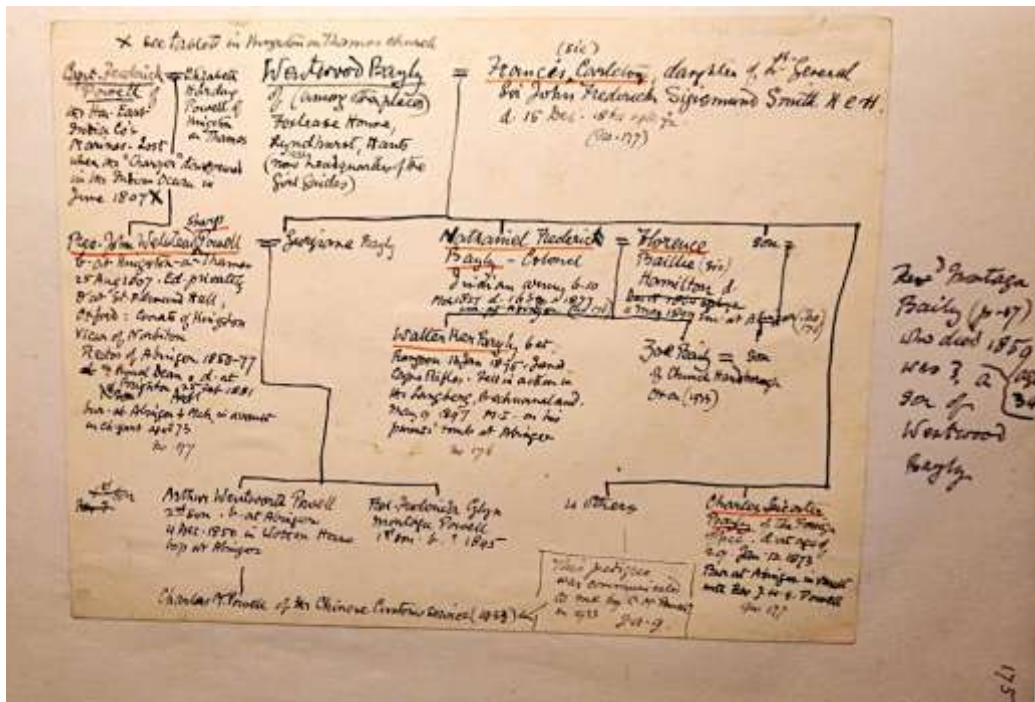 X see tablet in Kingston on Thames church
Capt. Frederick
Powell of
the Hon. East
India Co's
Marines - Lost
when the "Charger" foundered
in the Indian Ocean in
June 1807 X
= Elizabeth
Powell of
Kingston
on Thames
Wentwood Bayly
of (among other places)
Foxlease House,
Lyndhurst, Hants
(now headquarters of the
Girl Guides)
=
(sic)
Frances Carleton, daughter of Lt General
Sir John Frederick Sigismund Smith K.C.H.
d. 15 Dec.
(no. 177)
Sharp
Rev. John Welstead Powell
b. at Kingston-on-Thames
25 Aug 1807. Ed. privately
& at St. Edmund Hall,
Oxford: Curate of Kingston
Vicar of Norbiton
Rector of Abinger 1850-77
& Rural Dean, d. at
Brighton, 25 Feb. 1881
bur. at Abinger
aged 73
no 177
= Georgiana Bayly
Nathaniel Frederick
Bayly - Colonel
Indian Army b. 10
d. 1877
bur. at Abinger (no 176)
= Florence
Baillie (sic)
Hamilton d.
bur. at Abinger (no. 176)
son =
Walter Ker Bayly b. at
Rangoon 12 Jan. 1875. Joined
Cape Rifles. Fell in action in
the Langberg, Bechuanaland.
May 9 1897 M.I. on his
parents' tomb at Abinger
no 176
Zoe Bayly = son
of Church Hanborough
Oxon (1933)
Revd Montagu
Bayly (p. 87)
who died 1850
was ? a
son of
Wentwood
Bayly
1st son
Arthur Wentworth Powell
2nd son. b. at Abinger
4 Dec. 1850 in Wotton House
Abinger
Rev. Frederick Glyn
Montagu Powell
1st son b. ? 1845
4 others
Charles
Bayly of the Foreign
Office. d. at age of
29 Jan. 12. 1873
Bur. at Abinger in vault
with Rev. J. W. S. Powell
no 177
Charles A. Powell of the Chinese Customs Service (1933)
This pedigree
was communicated
to me by C. A. Powell
in 1933
175